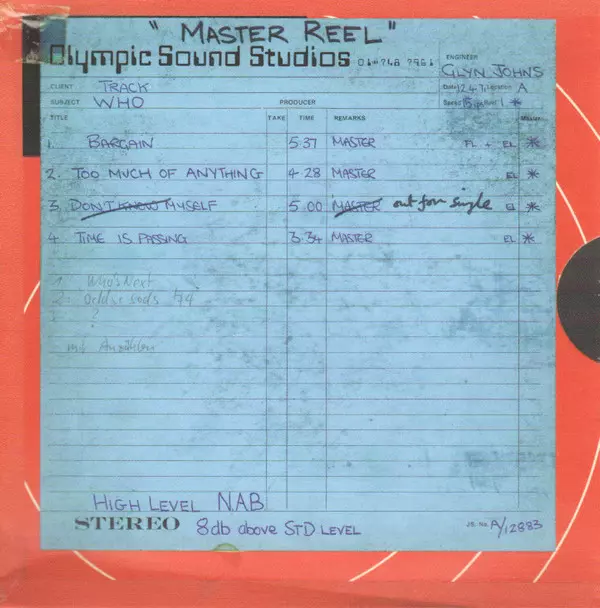 "MASTER REEL"
Olympic Sound Studios 01-748 7961
ENGINEER
GLYN JOHNS
CLIENT TRACK
Date 12.4.71 Location A
SUBJECT WHO
PRODUCER
Speed 15 ips Reel 1 *
TITLE TAKE TIME REMARKS Master
1. BARGAIN 5.37 MASTER FL + EL *
2. TOO MUCH OF ANYTHING 4.28 MASTER EL *
3. DON'T KNOW MYSELF 5.00 MASTER out for single EL *
4. TIME IS PASSING 3.34 MASTER EL *
1. Who's Next
2.
3. ?
mit
HIGH LEVEL NAB
STEREO 8db above STD LEVEL
JB. No. A/12883